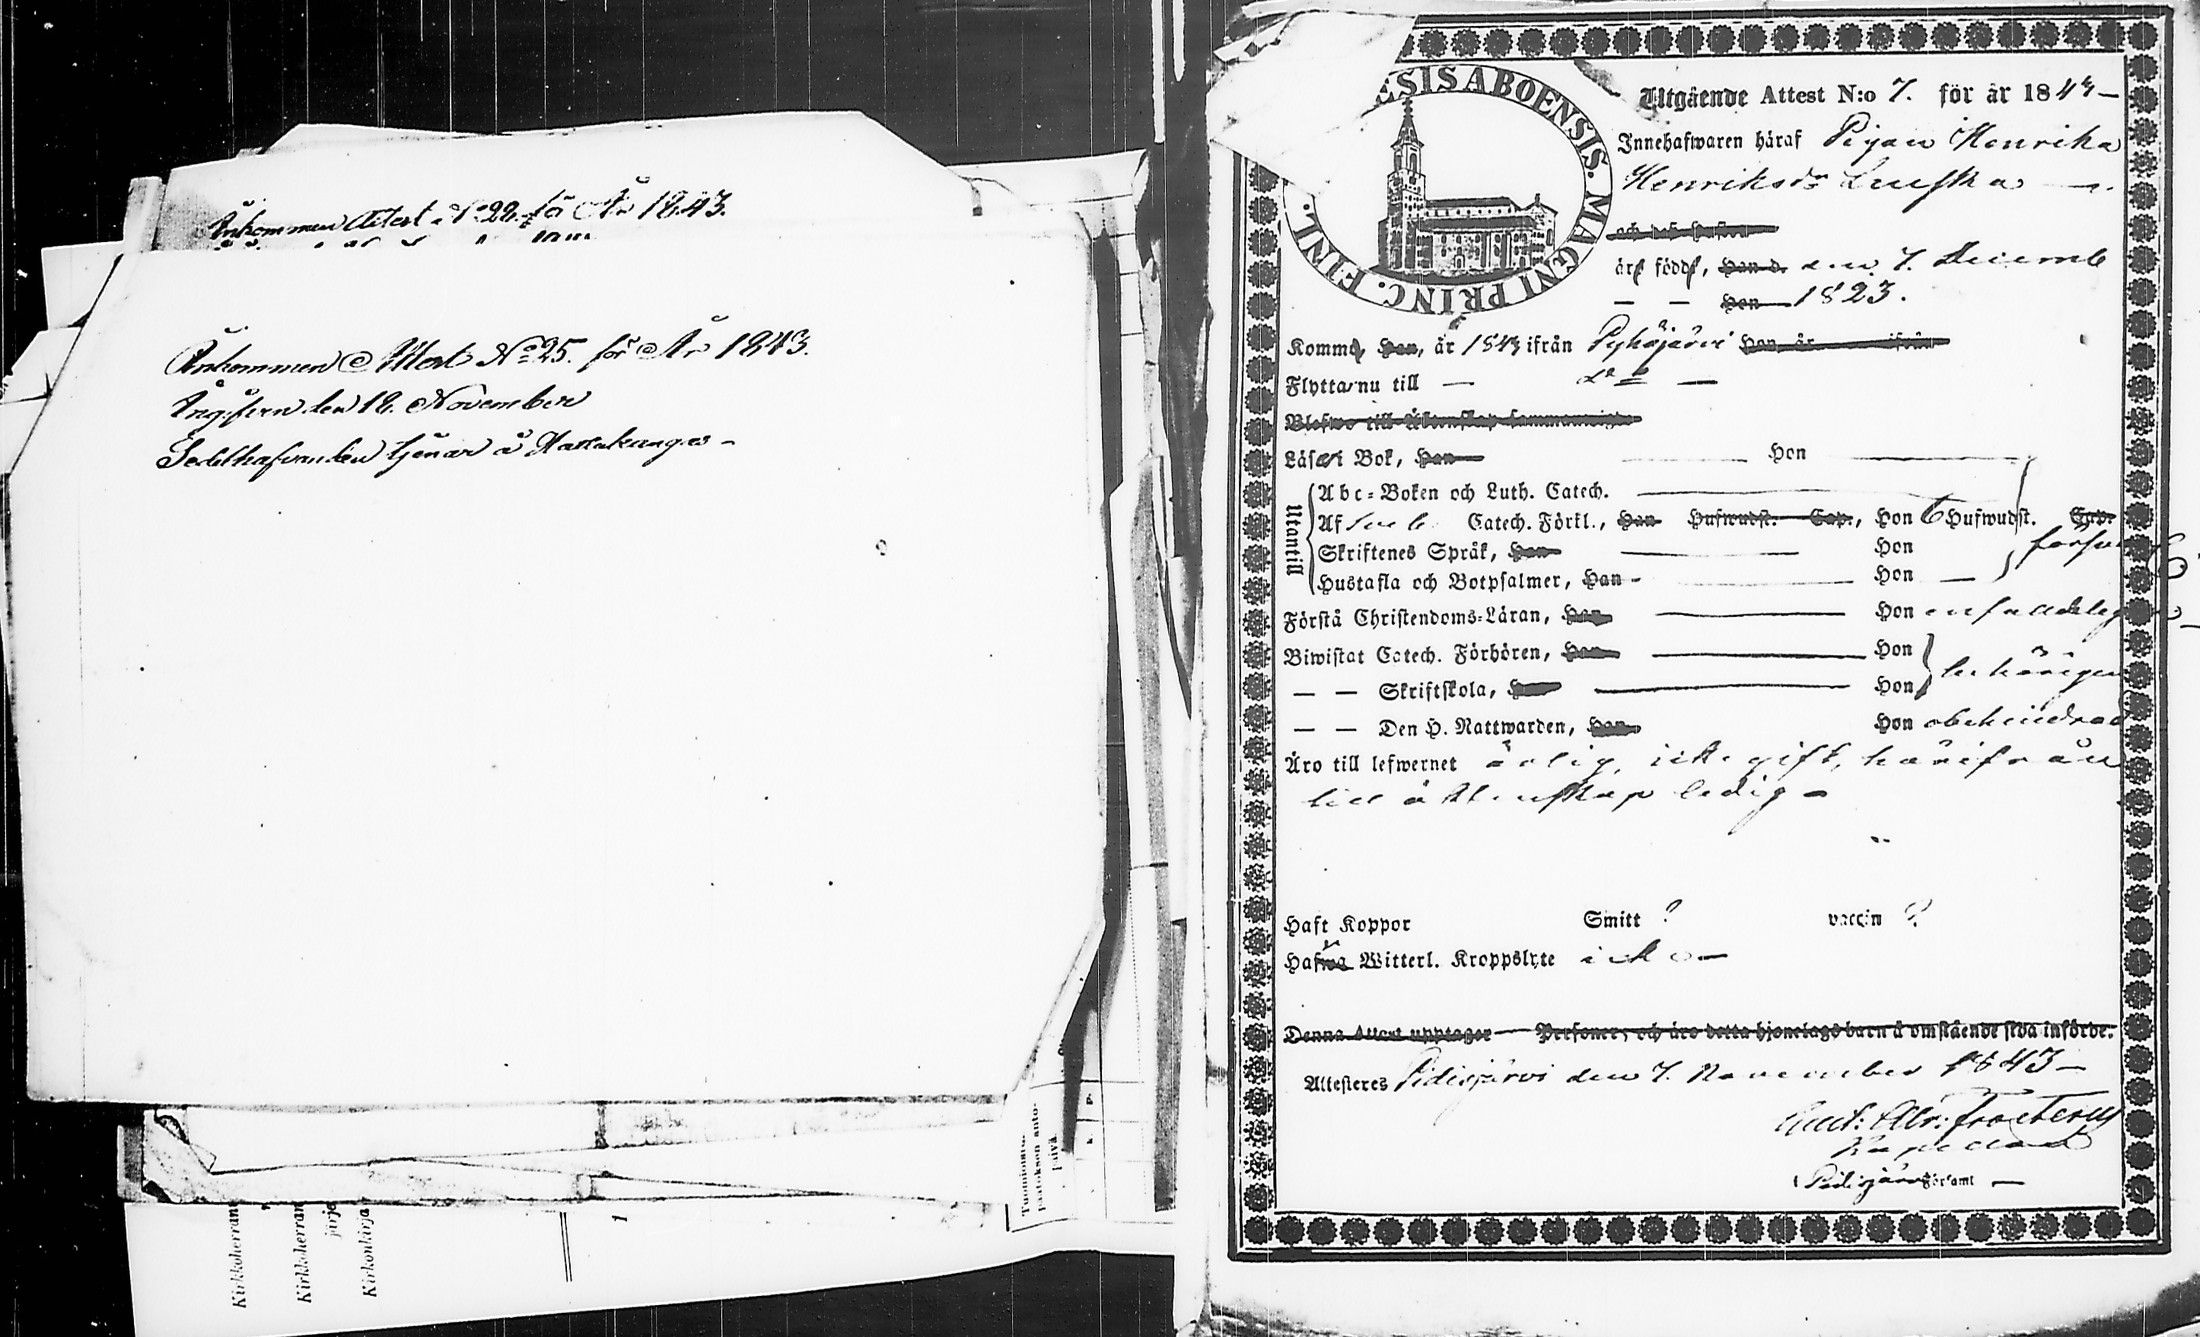 Ankommen Attest No 28. för År 1843.
Ankommen Attest No 25. för År 1843.
den 18. November
Sedelhafvanden tjenar å
Kirkkoherran
Kirkkoherran
järje
Kirkonkirja
1
Tuomioistui
päätöksen anto-
päivä.
ESIS ABOENSIS. MAGNI PRINC. FINL.
Utgående Attest N:o 7. för år 1843 –
Innehafwaren häraf Pigan Henrika
Henriksdr –
är född, den 7. Decemb
— — Hon 1823.
Kommo, Han, år 1843 ifrån Pyhäjärvi Hon, år ifrån
Flytta nu till — do —
Blefwo till Äktenskap sammanwigde
Läser i Bok, Han — Hon —
Utantill
Abc-Boken och Luth. Catech.
Af Catech. Förkl., Han Hufwudst. Cap., Hon 6 Hufwudst. Cap.
Skriftenes Språk, Han — Hon
Hustafla och Botpsalmer, Han — Hon —
Förstå Christendoms-Läran, Han — Hon
Biwistat Catech. Förhören, Han — Hon
— — Skriftskola, Han — Hon behörigen
— — Den H. Nattwarden, Han Hon obehindrad
Äro till lefwernet ärlig, icke gift, härifrån
till äktenskap ledig –
Haft Koppor Smitt ? vaccin ?
Hafwa Witterl. Kroppslyte icke –
Denna Attest upptager — Personer, och äro detta hjonelags barn å omstående sida införde.
Attesteres Pidisjärvi den 7. November 1843 –
Frosterus
Kapellan
Pidisjärvi